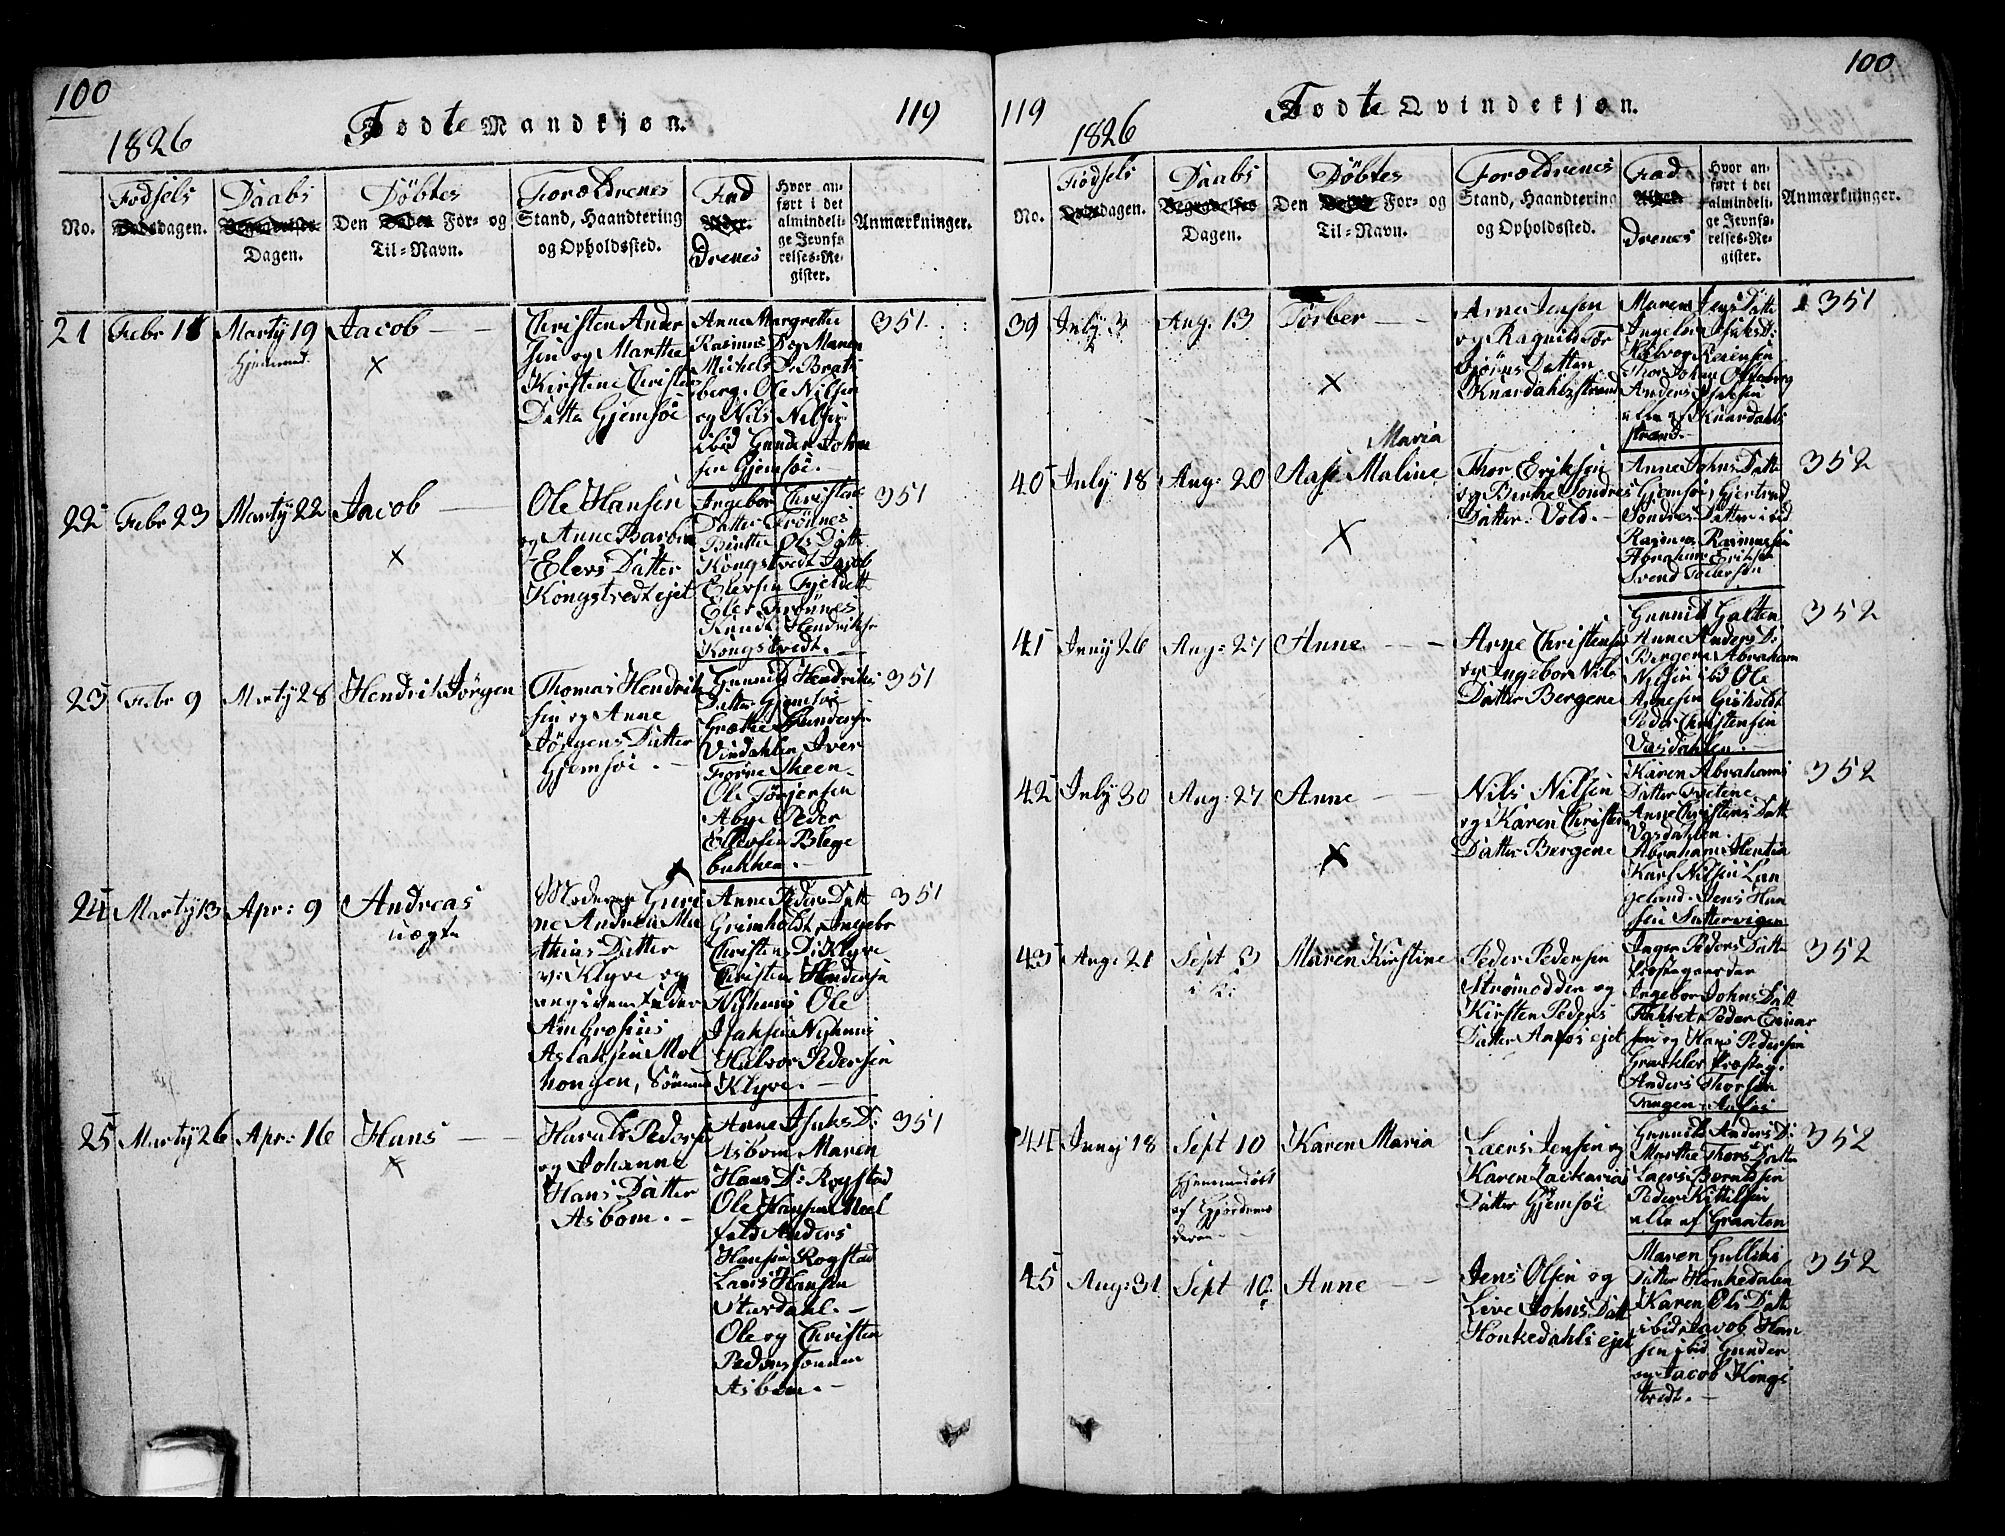 100
119
1826
Fødte Mandkjøn.
No.
Fødsels
dagen.
Daabs
Dagen.
Døbtes
Den For- og
Til-Navn.
Forældrenes
Stand, Haandtering
og Opholdssted.
Fad
drenes
Hvor an-
ført i det
almindeli-
ge Jevnfø
relses-Re-
gister.
Anmærkninger.
21 Febr 11 Marty 19 Jacob
Hjemmed.
Christen Ander
sen og Marthe
Kirstine Christens
Datter Gjemsøe
Anne Margrethe
Rasmus D og Maren
Michels Dr Brats
berg. Ole Nilsen
og Nils Nilsen
ibid Gunder Johan
sen Gjemsøe.
351
22 Febr 23 Marty 22 Jacob
Ole Hansen
og Anne Barbra
Elers Datter
Kongstredt ejet
Ingebor Christens
Datter Trønnes
Birthe Ols Datt
Kongstredt Jacob
Elersen Fjeldett
Eler Trønnes
Knudt Hendriksen
Kongstredt.
351
23 Febr 9 Marty 28 Hendrik Jørgen
Thomas Hendrik
sen og Anne
Jørgens Datter
Gjemsøe.
Gunnild Hendriks
Datter Gjemsøe
Grethe Gundersen
Vindahlen Iver
Skeen
Ole Torjersen
Aby Peder
Ellevsen Blege
bakken.
351
24 Marty 13 Apr: 9 Andreas
uægte
Moderen Guri
ne Andrea Ma
thias Datter
v: Klyve og
angiven Fader
Ambrosius
Aslaksen Mol
hougen, Sømand
Anne Peders Datt
Grimholdt, Ingebor
Christens D: Klyve
Christen Andersen
Nyhuus Ole
Isaksen Nyhuus
Halvor Pedersen
Klyve.
351
25 Marty 26 Apr: 16 Hans
Harald Pedersen
og Johanne
Hans Datter
Asbom.
Anne Isaks D:
Asbom Maren
Hans D: Rogstad
Ole Hansen Moel
fald Anders
Hansen Rogstad
Laers Hansen
Stordahl.
Ole og Christen
Pedersønner
Asbom.
351
119
100
1826
Fødte Qvindekjøn.
No.
Fødsels
dagen.
Daabs
Dagen.
Døbtes
Den For- og
Til-Navn.
Forældrenes
Stand, Haandtering
og Opholdssted.
Fad
drenes
Hvor an-
ført i det
almindeli-
ge Jevnfø-
relses-Re-
gister.
Anmærkninger.
39 July 3 Aug: 13 Torber
Arne Jensen
og Ragnild Tor
bjørns Datter
Knardahlsstrand
Maren Jens Datt
Ingebor Isaks D:
Halvor Reiersen
Thor Johan Ofteberg
Anders Isaksen
alle af Knardahls
strand.
351
40 July 18 Aug: 20 Aase Maline
Maria
Thor Eriksen
og Birthe Sondres
Datter Vold.
Anne Johns Datt
Gjemsøe, Gjertrud
Sondres Datter ibid
Rasmus Rasmussen
Abraham Eriksen
Svend Tollefsen
352
41 Juny 26 Aug: 27 Anne
Arne Christensen
og Ingebor Nils
Datter Bergene
Gunnild Galten
Anne Anders D:
Bergene Abraham
Nilsen ibid Ole
Arnesen Gisholdt
Peder Christensen
Vasdahlen.
352
42 July 30 Aug: 27 Anne
Nils Nilsen
og Karen Christens
Datter Bergene
Karen Abrahams
Datter Tvetene
Anne Christens Datt
Vasdahlen.
Abraham Hentia
Karl Nilsen Lan
geland. Jens Han
sen Sattervigen
352
43 Aug: 21 Sept 3 Maren Kirstine
Peder Pedersen
Strømodden og
Kirsten Peders
Datter Anfos ejet
Inger Peders Datt
Præstegaarden
Ingebor Johns Datt
Flakket Peder Einar
sen og Hans Pedersen
Graakler Præsteg.
Anders Thorsen
Tangen, Anfos
352
44 Juny 18 Sept 10 Karen Maria
Hjemmedøbt
af Gjordemo
deren
Laers Jensen og
Karen Zackarias
Datter Gjemsøe
Gunnild Anders D:
Marthe Thors Datter
Laers Berntsen
Peder Kittilsen
alle af Graaten
352
45 Aug: 31 Sept 10 Anne
Jens Olsen og
Live Johns Datt
Honkedahls ejet
Maren Gulliks
Datter Honkedalen
Karen Ols Datt
ibid, Jacob Han
sen ibid Gunder
og Jacob Kongs
tredt.
352